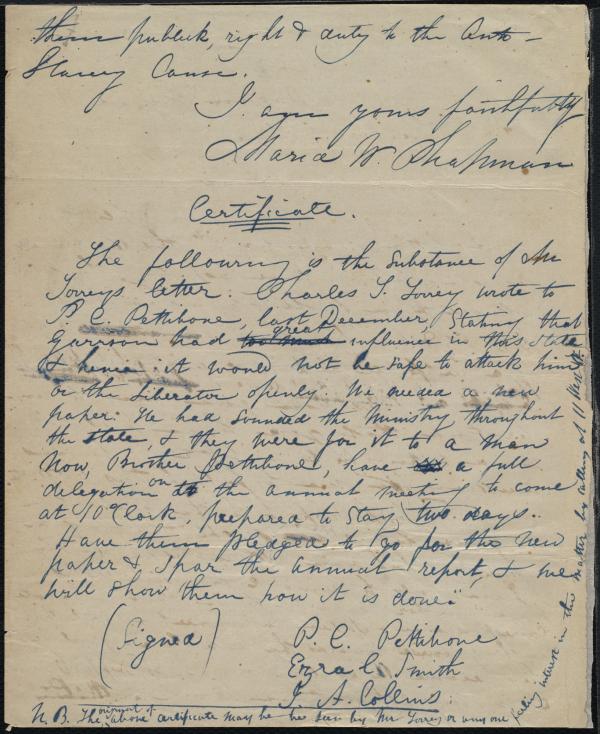 them publick, right & duty to the Anti-
Slavery Cause.
I am yours faithfully
Maria W. Chapman
Certificate.
The following is the substance of Mr
Torreys letter. Charles T. Torrey wrote to
P. C. Pettibone, last December, Stating that
Garrison had too much great influence in this state
& hence it would not be safe to attack him
or the Liberator openly. We needed a new
paper. He had sounded the Ministry throughout
the state & they were for it to a man
Now, Brother Pettibone, have a full
delegation on to the annual meeting to come
at 10 'Clock, prepared to stay two days.
Have them pledged to go for the new
paper & spar the annual report, & we
will show them how it is done."
(Signed) P. C. Pettibone
Ezra C. Smith
J. A. Collins
N. B. The original of above certificate may be seen by Mr Torrey or any one feeling interest in the matter by calling at 11